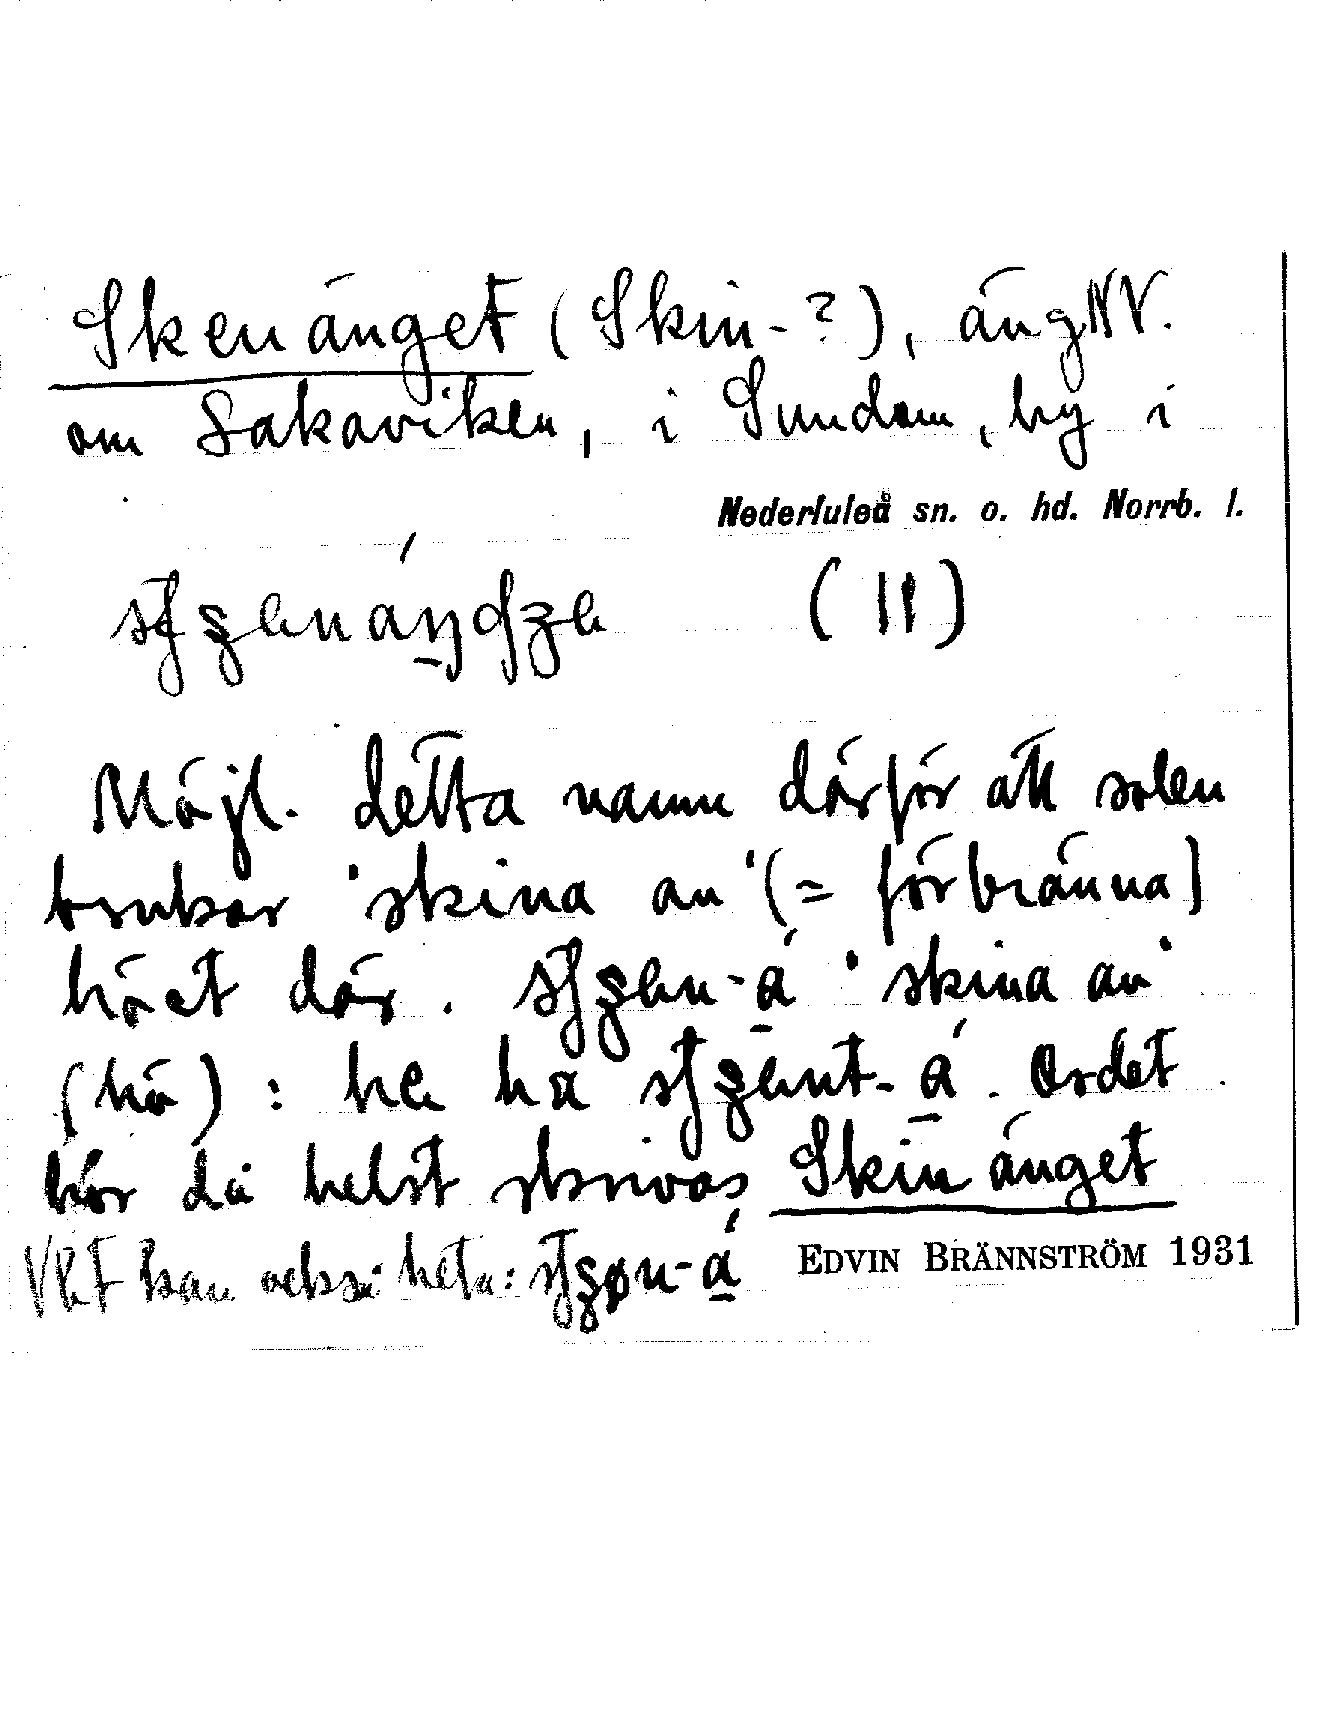 Skenänget (Skin-?), äng NV.
om Sakaviken, i Sundom, by i
Nederluleå sn. o. hd. Norrb. l.
(11)
Möjl. detta namn därför att solen
brukar 'skina an' (= förbränna)
höet där. 'skina an'
(hö): he ha Ordet
bör då helst skrivas Skinänget
Vbt kan också heta:
EDVIN BRÄNNSTRÖM 1931